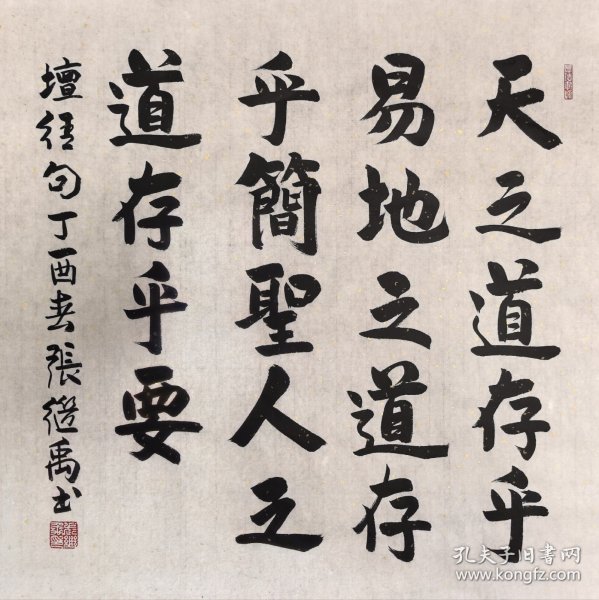 天之道存乎
易地之道存
乎簡聖人之
道存乎要
壇経句丁酉春張繼禹书
孔夫子旧書网
www.kongfz.com